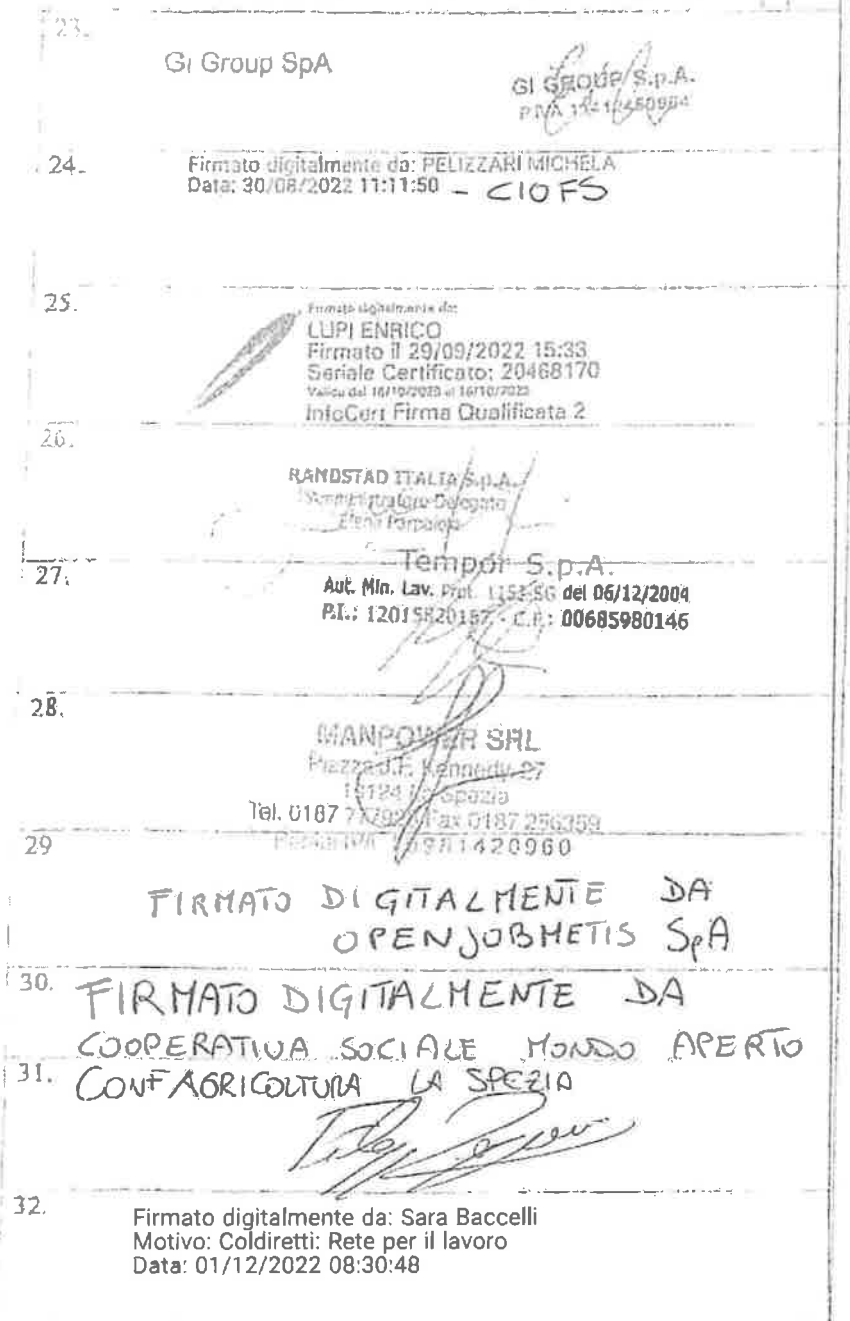 23.
Gi Group SpA
GI GROUP S.p.A.
P.IVA
24.
Firmato digitalmente da: PELIZZARI MICHELA
Data: 30/08/2022 11:11:50 - CIOFS
25.
Firmato digitalmente da:
LUPI ENRICO
Firmato il 29/09/2022 15:33
Seriale Certificato: 20468170
InfoCert Firma Qualificata 2
26.
RANDSTAD ITALIA S.p.A.
Amministratore Delegato
Elena
27.
Tempor S.p.A.
Aut. Min. Lav. Prot. 1153-SG del 06/12/2004
P.I.: 12015820157 - C.F.: 00685980146
28.
MANPOWER SRL
Piazza J.F. Kennedy 27
19124 La Spezia
Tel. 0187 Fax 0187 256359
Partita IVA
29
FIRMATO DIGITALMENTE DA
OPENJOBMETIS SpA
30.
FIRMATO DIGITALMENTE DA
COOPERATIVA SOCIALE MONDO APERTO
31.
CONFAGRICOLTURA LA SPEZIA
32.
Firmato digitalmente da: Sara Baccelli
Motivo: Coldiretti: Rete per il lavoro
Data: 01/12/2022 08:30:48